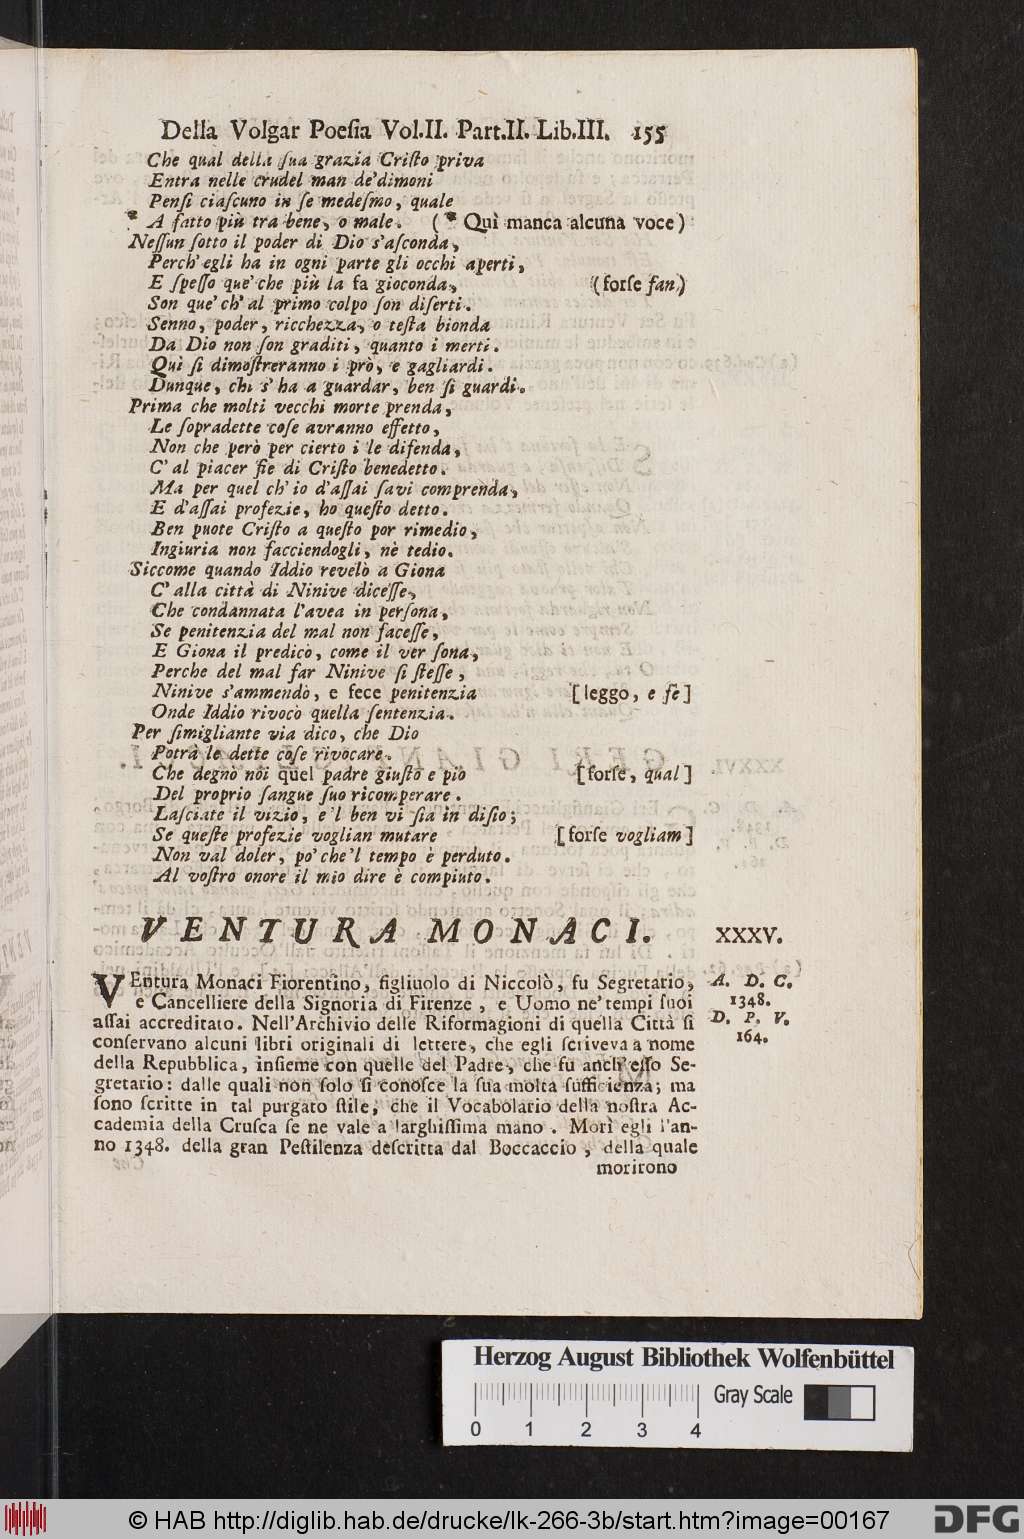 Della Volgar Poeſia Vol.II. Part.II. Lib.III. 155
Che qual della ſua grazia Criſto priva
Entra nelle crudel man de'dimoni
Penſi ciaſcuno in ſe medeſmo, quale
* A fatto più tra bene, o male. (* Quì manca alcuna voce)
Neſſun ſotto il poder di Dio s'aſconda,
Perch'egli ha in ogni parte gli occhi aperti,
E ſpeſſo que'che più la fa gioconda, (forſe fan)
Son que'ch'al primo colpo ſon diſerti.
Senno, poder, ricchezza, o teſta bionda
Da Dio non ſon graditi, quanto i merti.
Quì ſi dimoſtreranno i prò, e gagliardi.
Dunque, chi s'ha a guardar, ben ſi guardi.
Prima che molti vecchi morte prenda,
Le ſopradette coſe avranno effetto,
Non che però per cierto i le difenda,
C'al piacer fie di Criſto benedetto.
Ma per quel ch'io d'aſſai ſavi comprenda,
E d'aſſai profezie, ho queſto detto.
Ben puote Criſto a queſto por rimedio,
Ingiuria non facciendogli, nè tedio.
Siccome quando Iddio revelò a Giona
C'alla città di Ninive diceſſe,
Che condannata l'avea in perſona,
Se penitenzia del mal non faceſſe,
E Giona il predicò, come il ver ſona,
Perche del mal far Ninive ſi ſteſſe,
Ninive s'ammendò, e fece penitenzia [leggo, e fè]
Onde Iddio rivocò quella ſentenzia.
Per ſimigliante via dico, che Dio
Potrà le dette coſe rivocare.
Che degnò noi quel padre giuſto e pio [forſe, qual]
Del proprio ſangue ſuo ricomperare.
Laſciate il vizio, e'l ben vi ſia in diſio;
Se queſte profezie voglian mutare [forſe vogliam]
Non val doler, po'che'l tempo è perduto.
Al voſtro onore il mio dire è compiuto.
VENTURA MONACI. XXXV.
VEntura Monaci Fiorentino, figliuolo di Niccolò, fu Segretario, A. D. C.
e Cancelliere della Signoria di Firenze, e Uomo ne'tempi ſuoi 1348.
aſſai accreditato. Nell'Archivio delle Riformagioni di quella Città ſi D. P. V.
conſervano alcuni libri originali di lettere, che egli ſcriveva a nome 164.
della Repubblica, inſieme con quelle del Padre, che fu anch'eſſo Se-
gretario: dalle quali non ſolo ſi conoſce la ſua molta ſufficienza; ma
ſono ſcritte in tal purgato ſtile, che il Vocabolario della noſtra Ac-
cademia della Cruſca ſe ne vale a larghiſſima mano. Morì egli l'an-
no 1348. della gran Peſtilenza deſcritta dal Boccaccio, della quale
morirono
Herzog August Bibliothek Wolfenbüttel
Gray Scale
0 1 2 3 4
© HAB http://diglib.hab.de/drucke/lk-266-3b/start.htm?image=00167
DFG